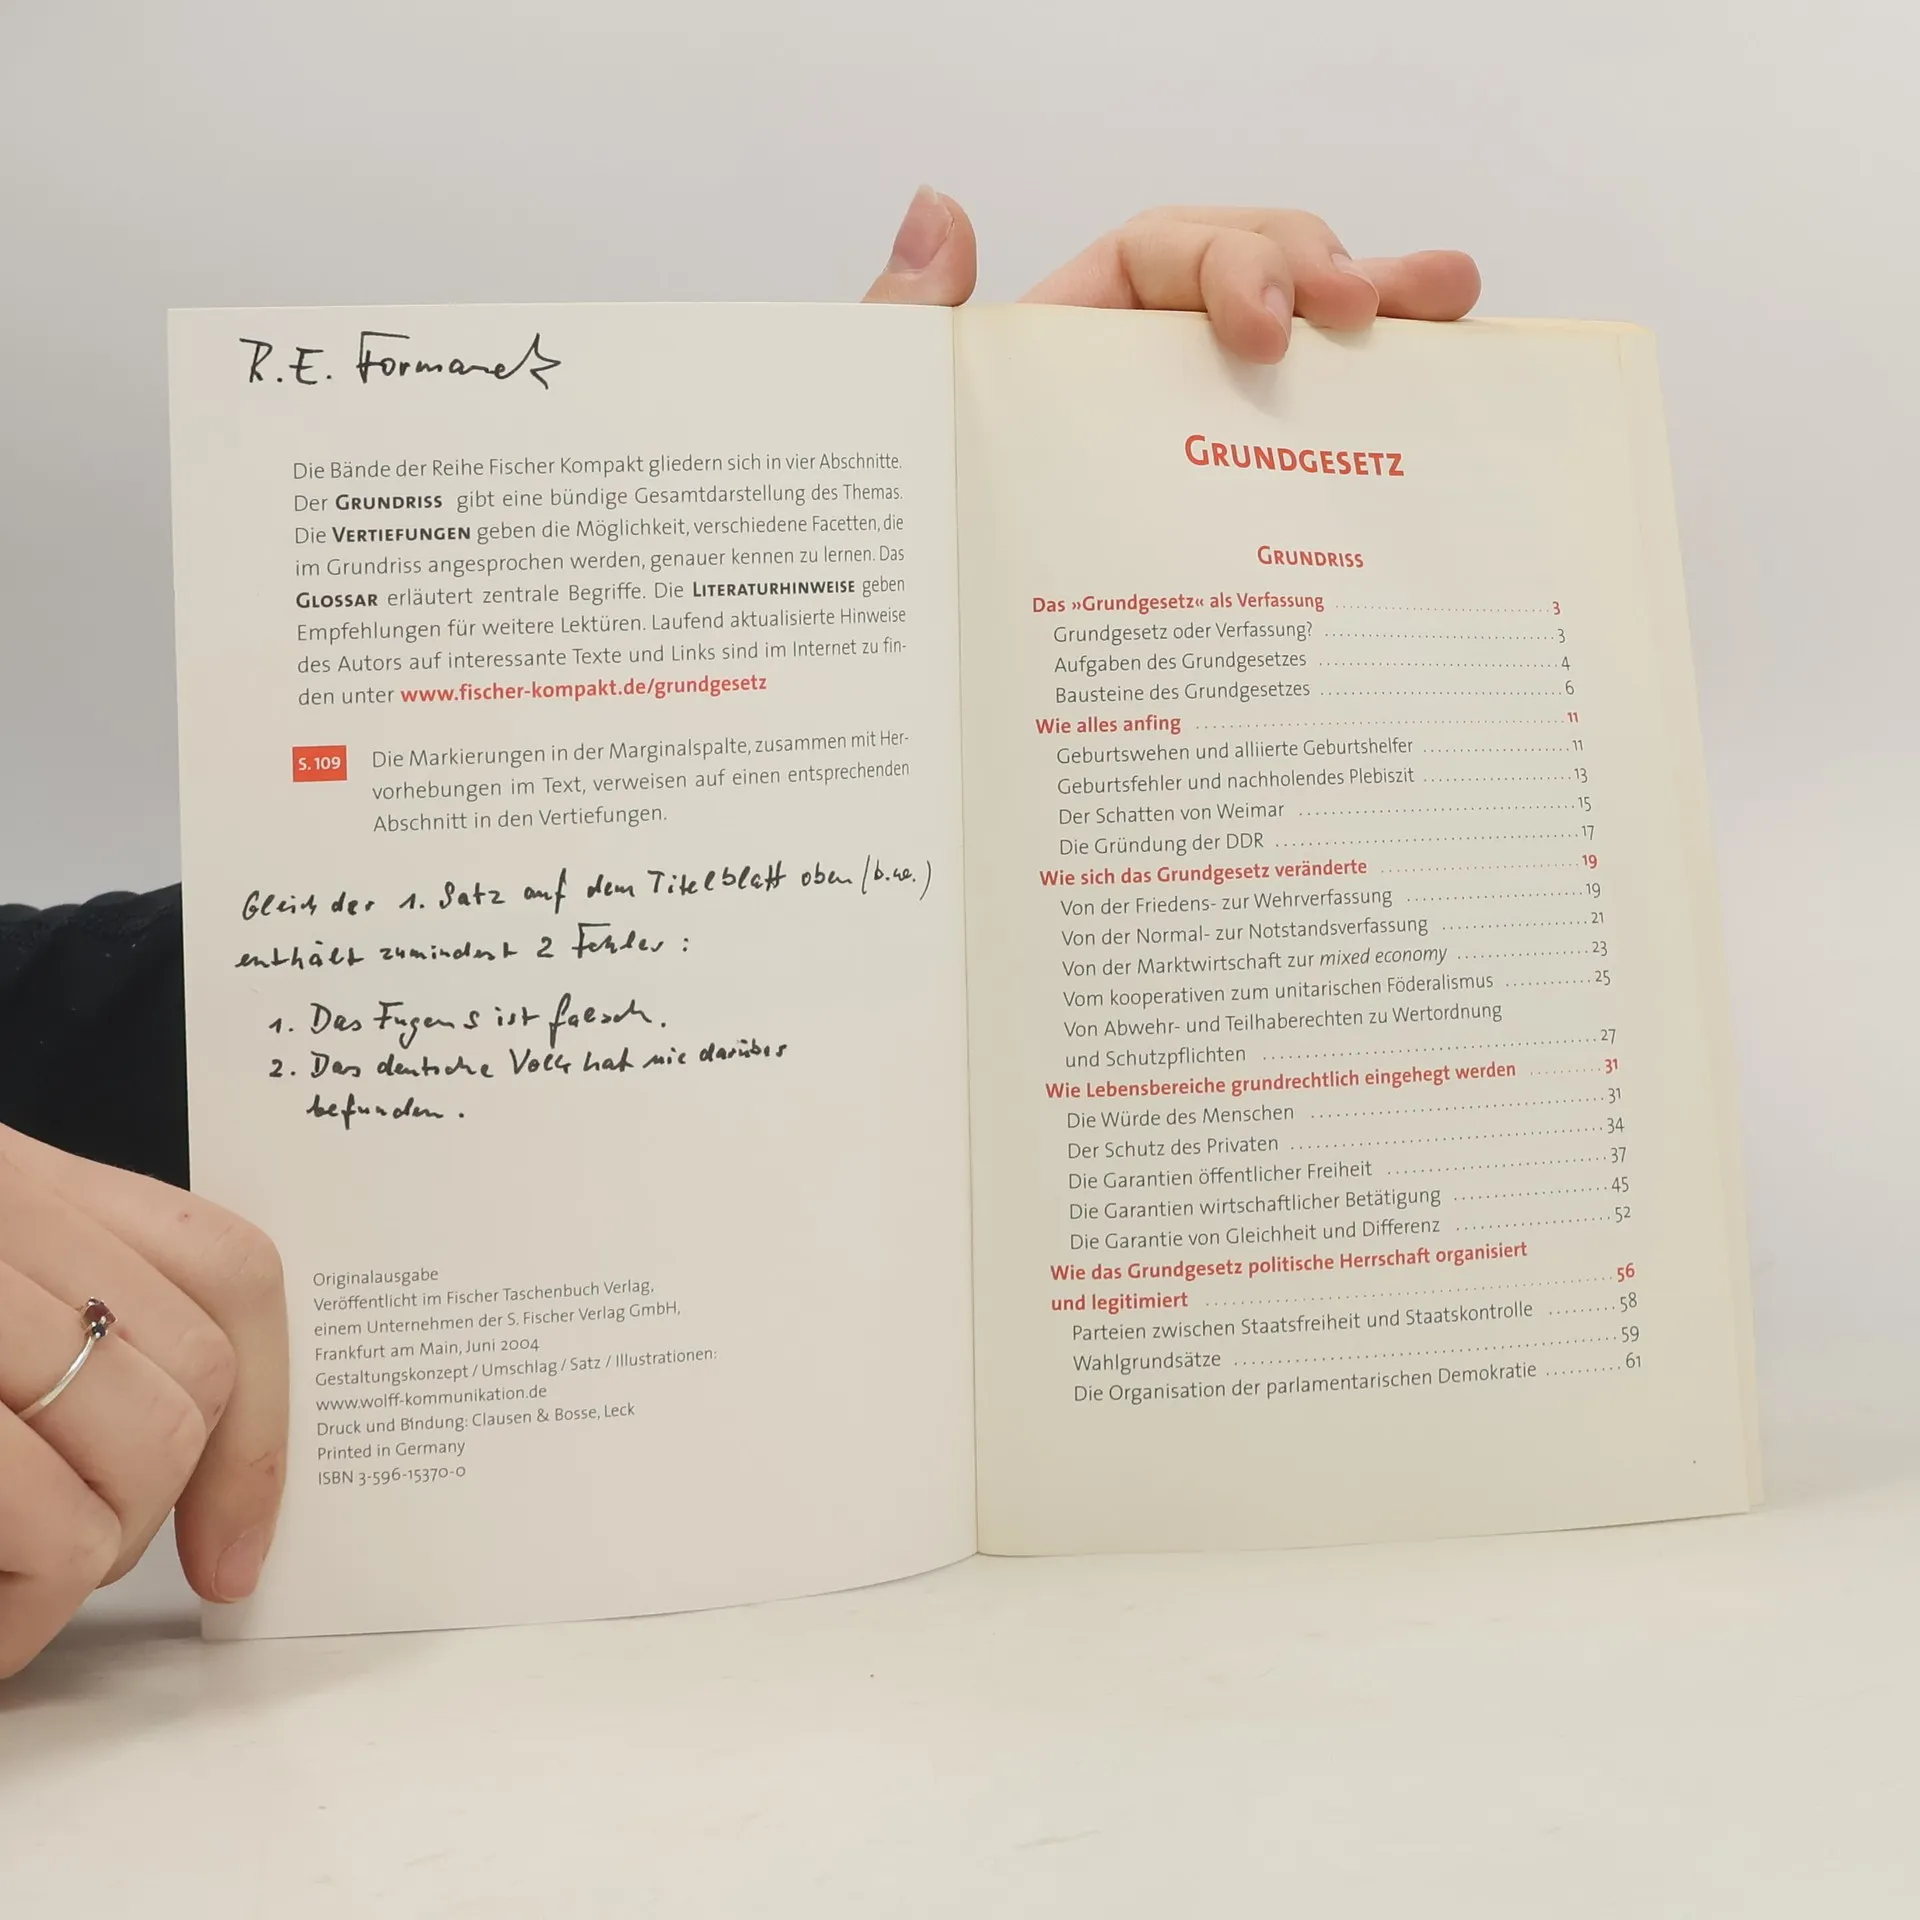 R.E. Formanek
Die Bände der Reihe Fischer Kompakt gliedern sich in vier Abschnitte.
Der GRUNDRISS gibt eine bündige Gesamtdarstellung des Themas.
Die VERTIEFUNGEN geben die Möglichkeit, verschiedene Facetten, die
im Grundriss angesprochen werden, genauer kennen zu lernen. Das
GLOSSAR erläutert zentrale Begriffe. Die LITERATURHINWEISE geben
Empfehlungen für weitere Lektüren. Laufend aktualisierte Hinweise
des Autors auf interessante Texte und Links sind im Internet zu fin-
den unter www.fischer-kompakt.de/grundgesetz
S. 109
Die Markierungen in der Marginalspalte, zusammen mit Her-
vorhebungen im Text, verweisen auf einen entsprechenden
Abschnitt in den Vertiefungen.
Gleich der 1. Satz auf dem Titelblatt oben (b.w.)
enthält zumindest 2 Fehler:
1. Das Fugen s ist falsch.
2. Das deutsche Volk hat nie darüber
befunden.
Originalausgabe
Veröffentlicht im Fischer Taschenbuch Verlag,
einem Unternehmen der S. Fischer Verlag GmbH,
Frankfurt am Main, Juni 2004
Gestaltungskonzept / Umschlag / Satz / Illustrationen:
www.wolff-kommunikation.de
Druck und Bindung: Clausen & Bosse, Leck
Printed in Germany
ISBN 3-596-15370-0
GRUNDGESETZ
GRUNDRISS
Das »Grundgesetz« als Verfassung ........ 3
Grundgesetz oder Verfassung? ........ 3
Aufgaben des Grundgesetzes ........ 4
Bausteine des Grundgesetzes ........ 6
Wie alles anfing ........ 11
Geburtswehen und alliierte Geburtshelfer ........ 11
Geburtsfehler und nachholendes Plebiszit ........ 13
Der Schatten von Weimar ........ 15
Die Gründung der DDR ........ 17
Wie sich das Grundgesetz veränderte ........ 19
Von der Friedens- zur Wehrverfassung ........ 19
Von der Normal- zur Notstandsverfassung ........ 21
Von der Marktwirtschaft zur mixed economy ........ 23
Vom kooperativen zum unitarischen Föderalismus ........ 25
Von Abwehr- und Teilhaberechten zu Wertordnung
und Schutzpflichten ........ 27
Wie Lebensbereiche grundrechtlich eingehegt werden ........ 31
Die Würde des Menschen ........ 31
Der Schutz des Privaten ........ 34
Die Garantien öffentlicher Freiheit ........ 37
Die Garantien wirtschaftlicher Betätigung ........ 45
Die Garantie von Gleichheit und Differenz ........ 52
Wie das Grundgesetz politische Herrschaft organisiert
und legitimiert ........ 56
Parteien zwischen Staatsfreiheit und Staatskontrolle ........ 58
Wahlgrundsätze ........ 59
Die Organisation der parlamentarischen Demokratie ........ 61